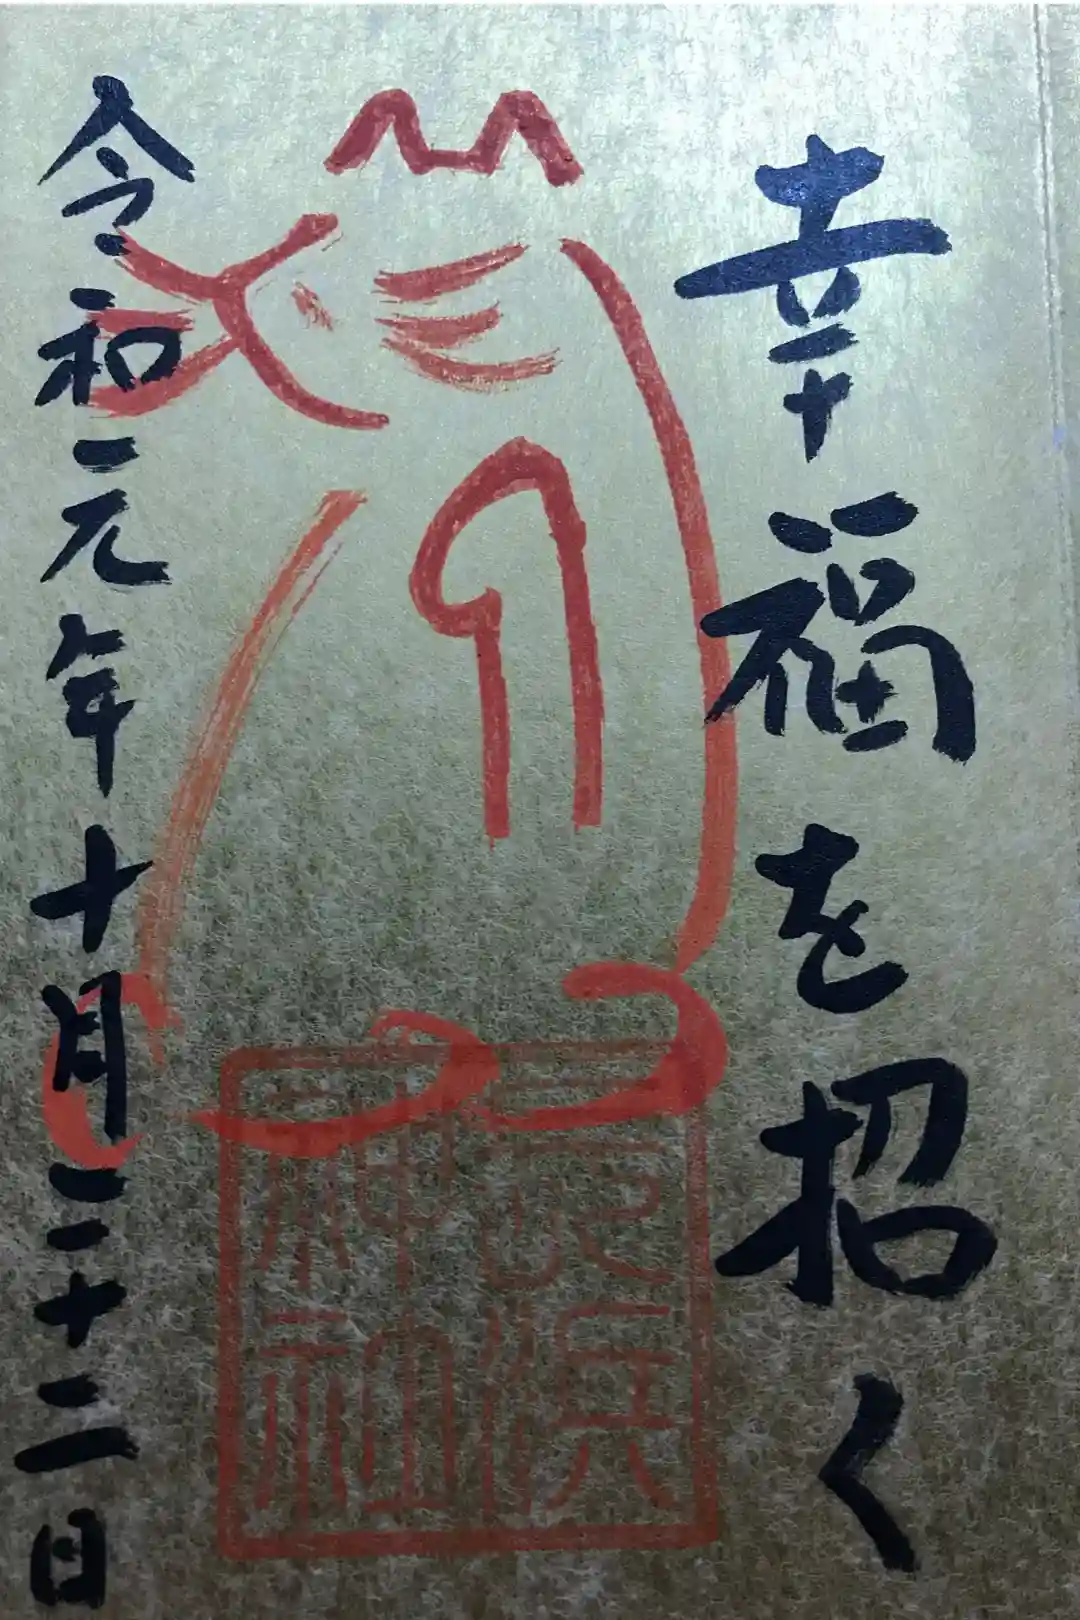 幸福を招く
長浜
神社
令和元年十月二十二日